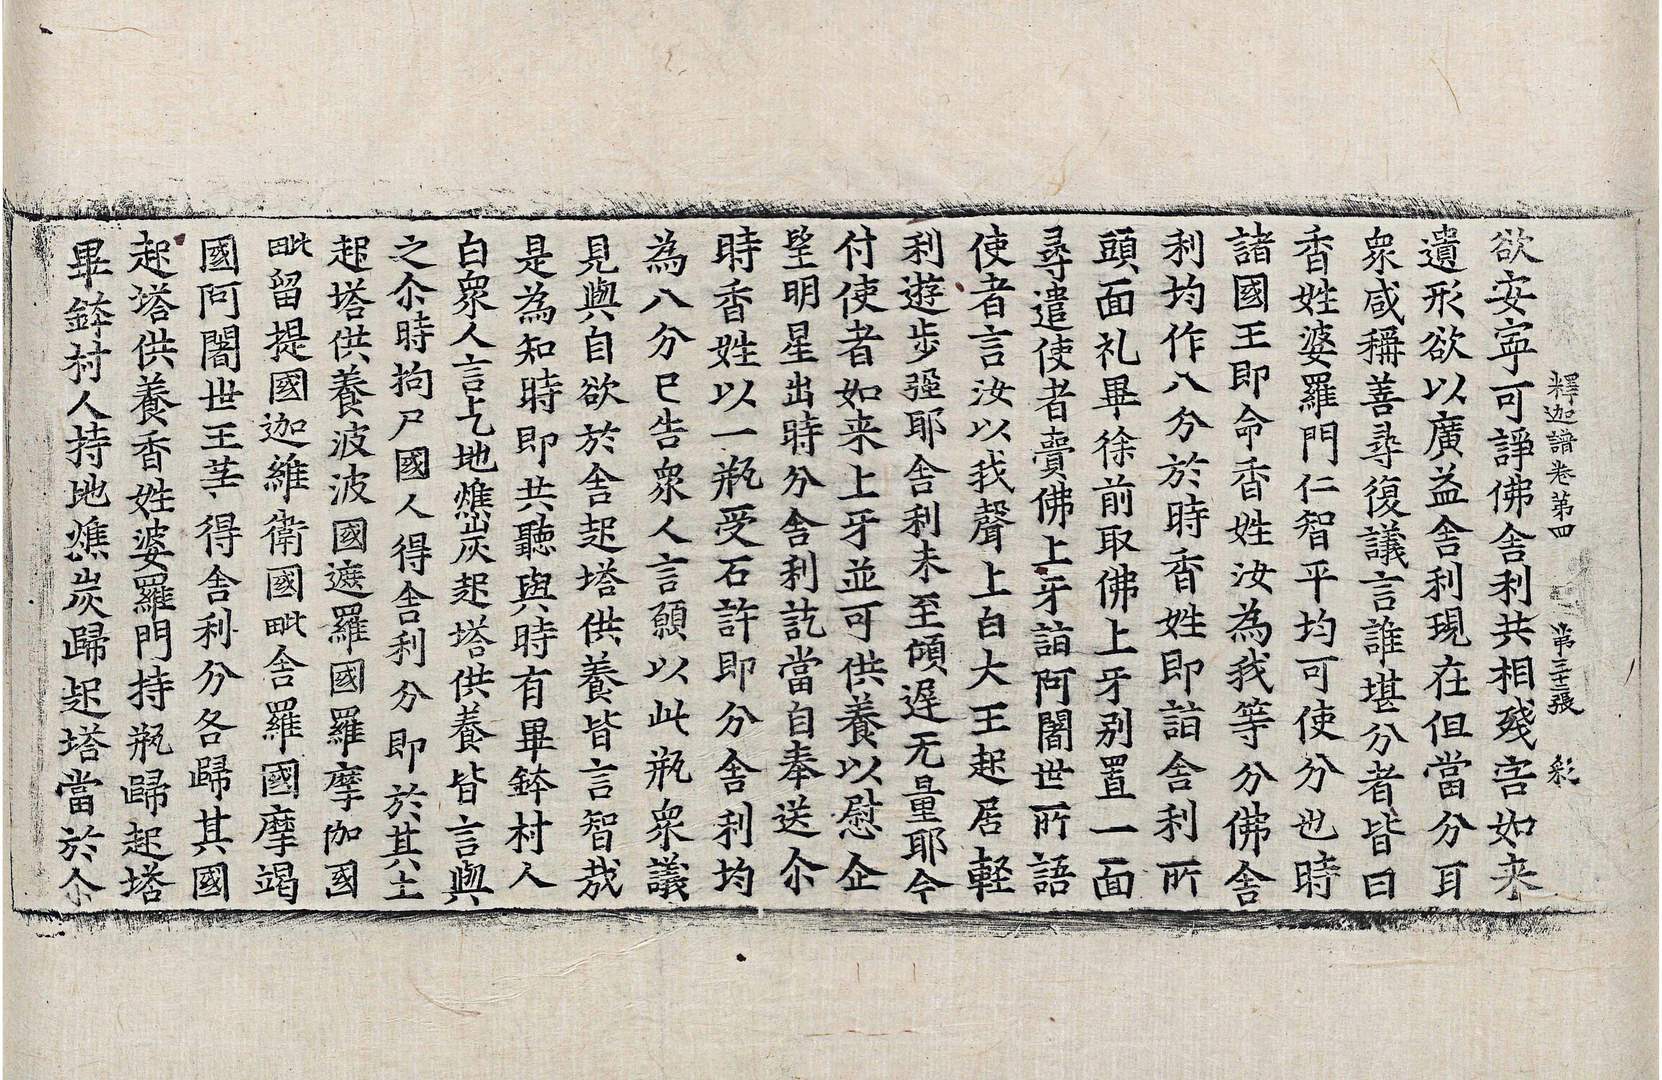 釋迦譜卷第四 第三十三張 彩
欲安寧可諍佛舍利共相殘害如来
遺形欲以廣益舍利現在但當分耳
衆咸稱善尋復議言誰堪分者皆曰
香姓婆羅門仁智平均可使分也時
諸國王即命香姓汝為我等分佛舍
利均作八分於時香姓即詣舍利所
頭面礼畢徐前取佛上牙別置一面
尋遣使者賷佛上牙詣阿闍世所語
使者言汝以我聲上白大王起居輕
利遊步强耶舍利未至傾遲无量耶今
付使者如来上牙並可供養以慰企
望明星出時分舍利訖當自奉送尒
時香姓以一瓶受石許即分舍利均
為八分已告衆人言願以此瓶衆議
見與自欲於舍起塔供養皆言智哉
是為知時即共聽與時有畢鉢村人
白衆人言乞地燋炭起塔供養皆言與
之尒時拘尸國人得舍利分即於其土
起塔供養波波國遮羅國羅摩伽國
毗留提國迦維衛國毗舍羅國摩竭
國阿闍世王等得舍利分各歸其國
起塔供養香姓婆羅門持瓶歸起塔
畢鉢村人持地燋炭歸起塔當於尒